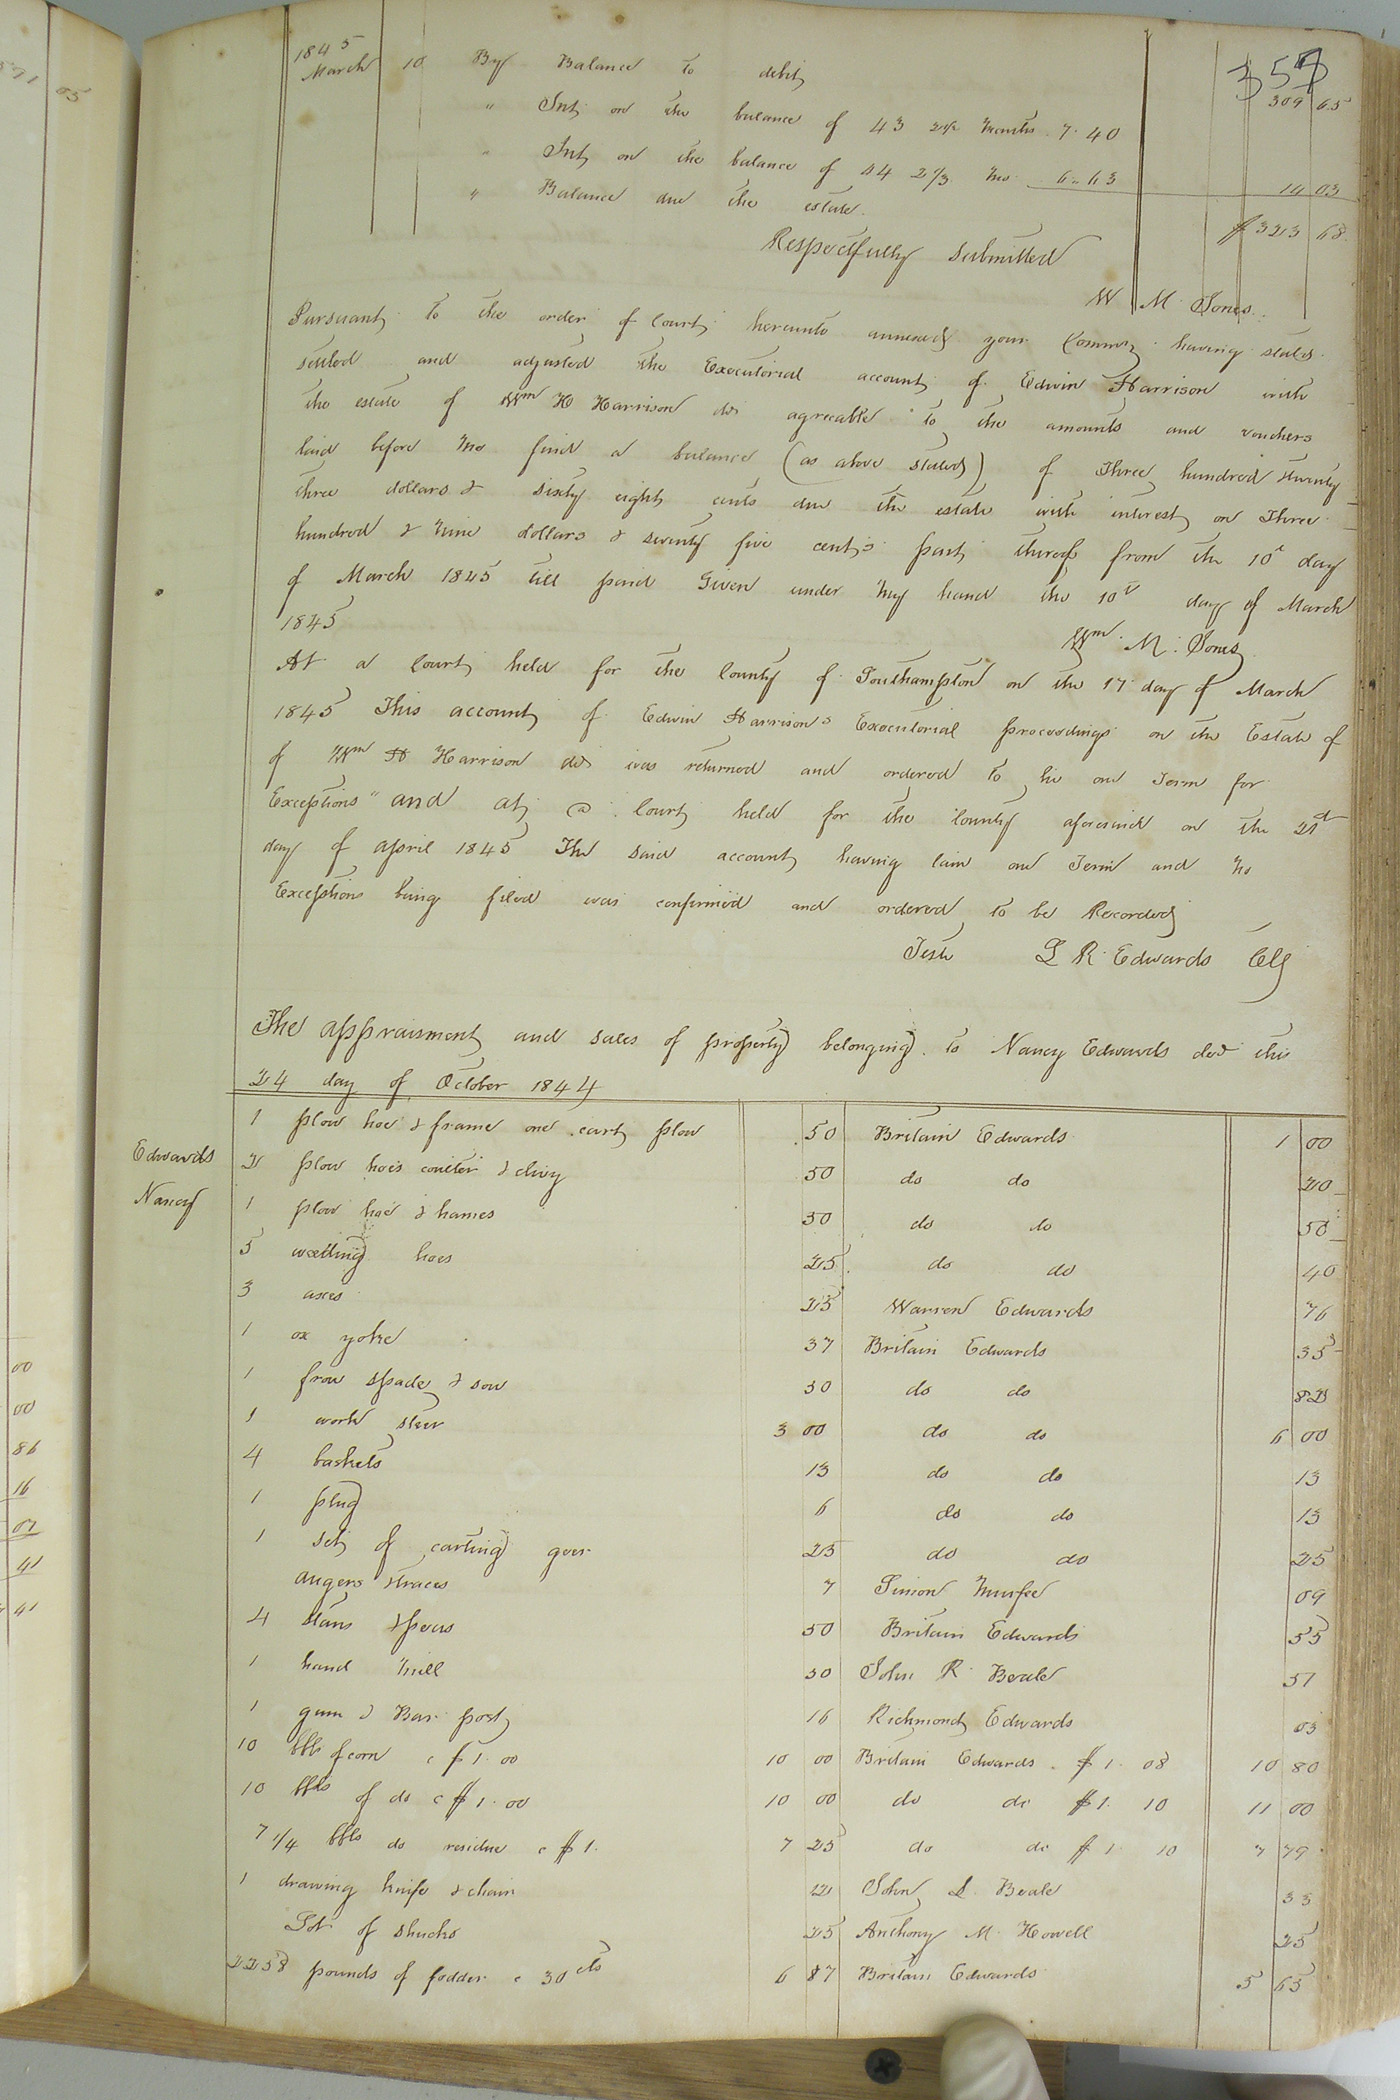 357
1845
March 10 By Balance to debt 309 65
" Int on the balance of 43 2/2 months 7.40
" Int on the balance of 44 2/3 mo 6.63 14 03
" Balance due the estate. $323 68
Respectfully submitted
W M Jones
Pursuant to the order of Court hereunto annexed your Commr having stated
settled and adjusted the Executorial account of Edwin Harrison with
the estate of Wm H Harrison dec agreeable to the amounts and vouchers
laid before me find a balance (as above stated) of Three hundred twenty
three dollars & sixty eight cents due the estate with interest on Three
hundred & nine dollars & seventy five cents part thereof from the 10th day
of March 1845 till paid Given under my hand the 10th day of March
1845
Wm M. Jones
At a Court held for the County of Southampton on the 17 day of March
1845 This account of Edwin Harrisons Executorial proceedings on the Estate of
of Wm H Harrison dec was returned and ordered to lie one Term for
Exceptions" and at a Court held for the County aforesaid on the 21st
day of April 1845 The said account having lain one Term and no
Exceptions being filed was confirmed and ordered to be Recorded
Teste L R Edwards Clk
The appraisment and sales of property belonging to Nancy Edwards decd this
24 day of October 1844
Edwards
Nancy
1 plow hoe & frame one cart plow 50 Britain Edwards 1 00
2 plow hoes coulter & clivy 50 do do 20
1 plow hoe & hames 50 do do 50
5 weeding hoes 25 do do 40
3 axes 25 Warren Edwards 76
1 ox yoke 37 Britain Edwards 35
1 frow spade & saw 50 do do 82
1 work steer 3 00 do do 6 00
4 baskets 13 do do 13
1 plug 6 do do 13
1 set of carting gear 25 do do 25
augers & traces 7 Simon Murfee 09
4 stans & peas 50 Britain Edwards 55
1 hand mill 50 John R Beale 51
1 gum & Bar post 16 Richmond Edwards 03
10 bbls of corn c $1.00 10 00 Britain Edwards $1. 08 10 80
10 bbls of do c $1.00 10 00 do do $1. 10 11 00
7 1/4 bbls do residue c $1. 7 25 do do $1 10 7 79
1 drawing knife & chain 12 John L Beale 33
Lot of shucks 25 Anthony M Howell 25
2258 pounds of fodder c 30 cts 6 87 Britain Edwards 5 65
00
00
86
16
07
41
41